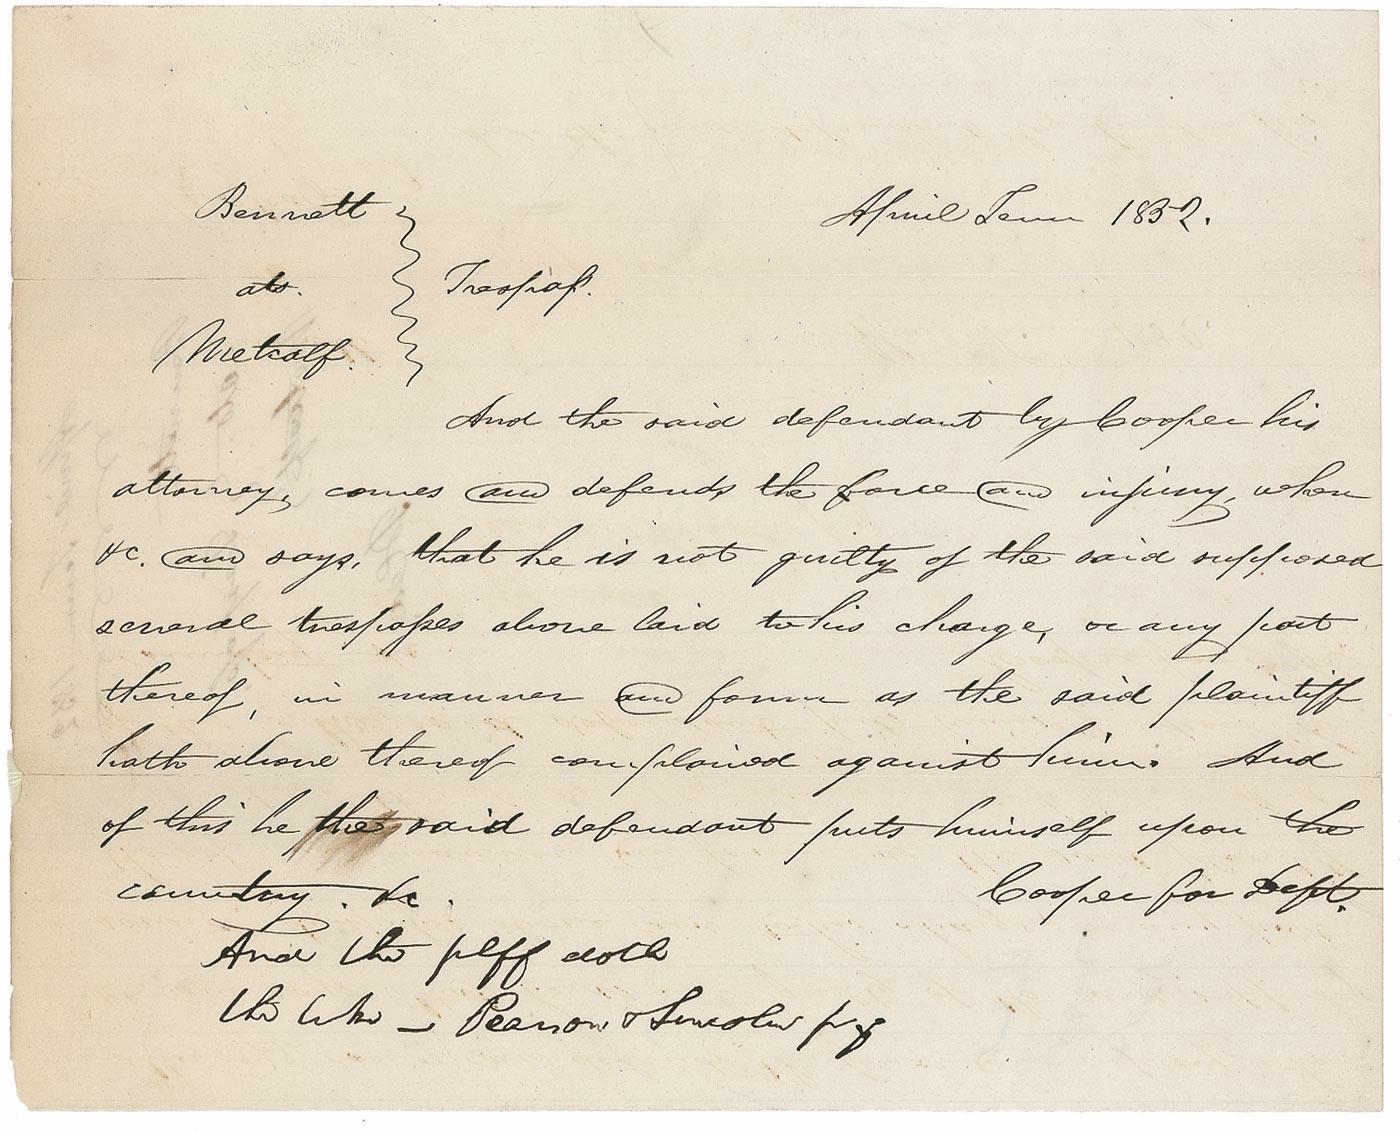 Bennett
ats.
Metcalf.
Trespass.
April Term 1852.
And the said defendant by Cooper his
attorney, comes and defends the force and injury, when
&c. and says, that he is not guilty of the said supposed
several trespasses above laid to his charge, or any part
thereof, in manner and form as the said plaintiff
hath above thereof complained against him. And
of this he the said defendant puts himself upon the
country. &c.
Cooper for Deft.
And the plff doth
the like — Pearson & Lincoln p q